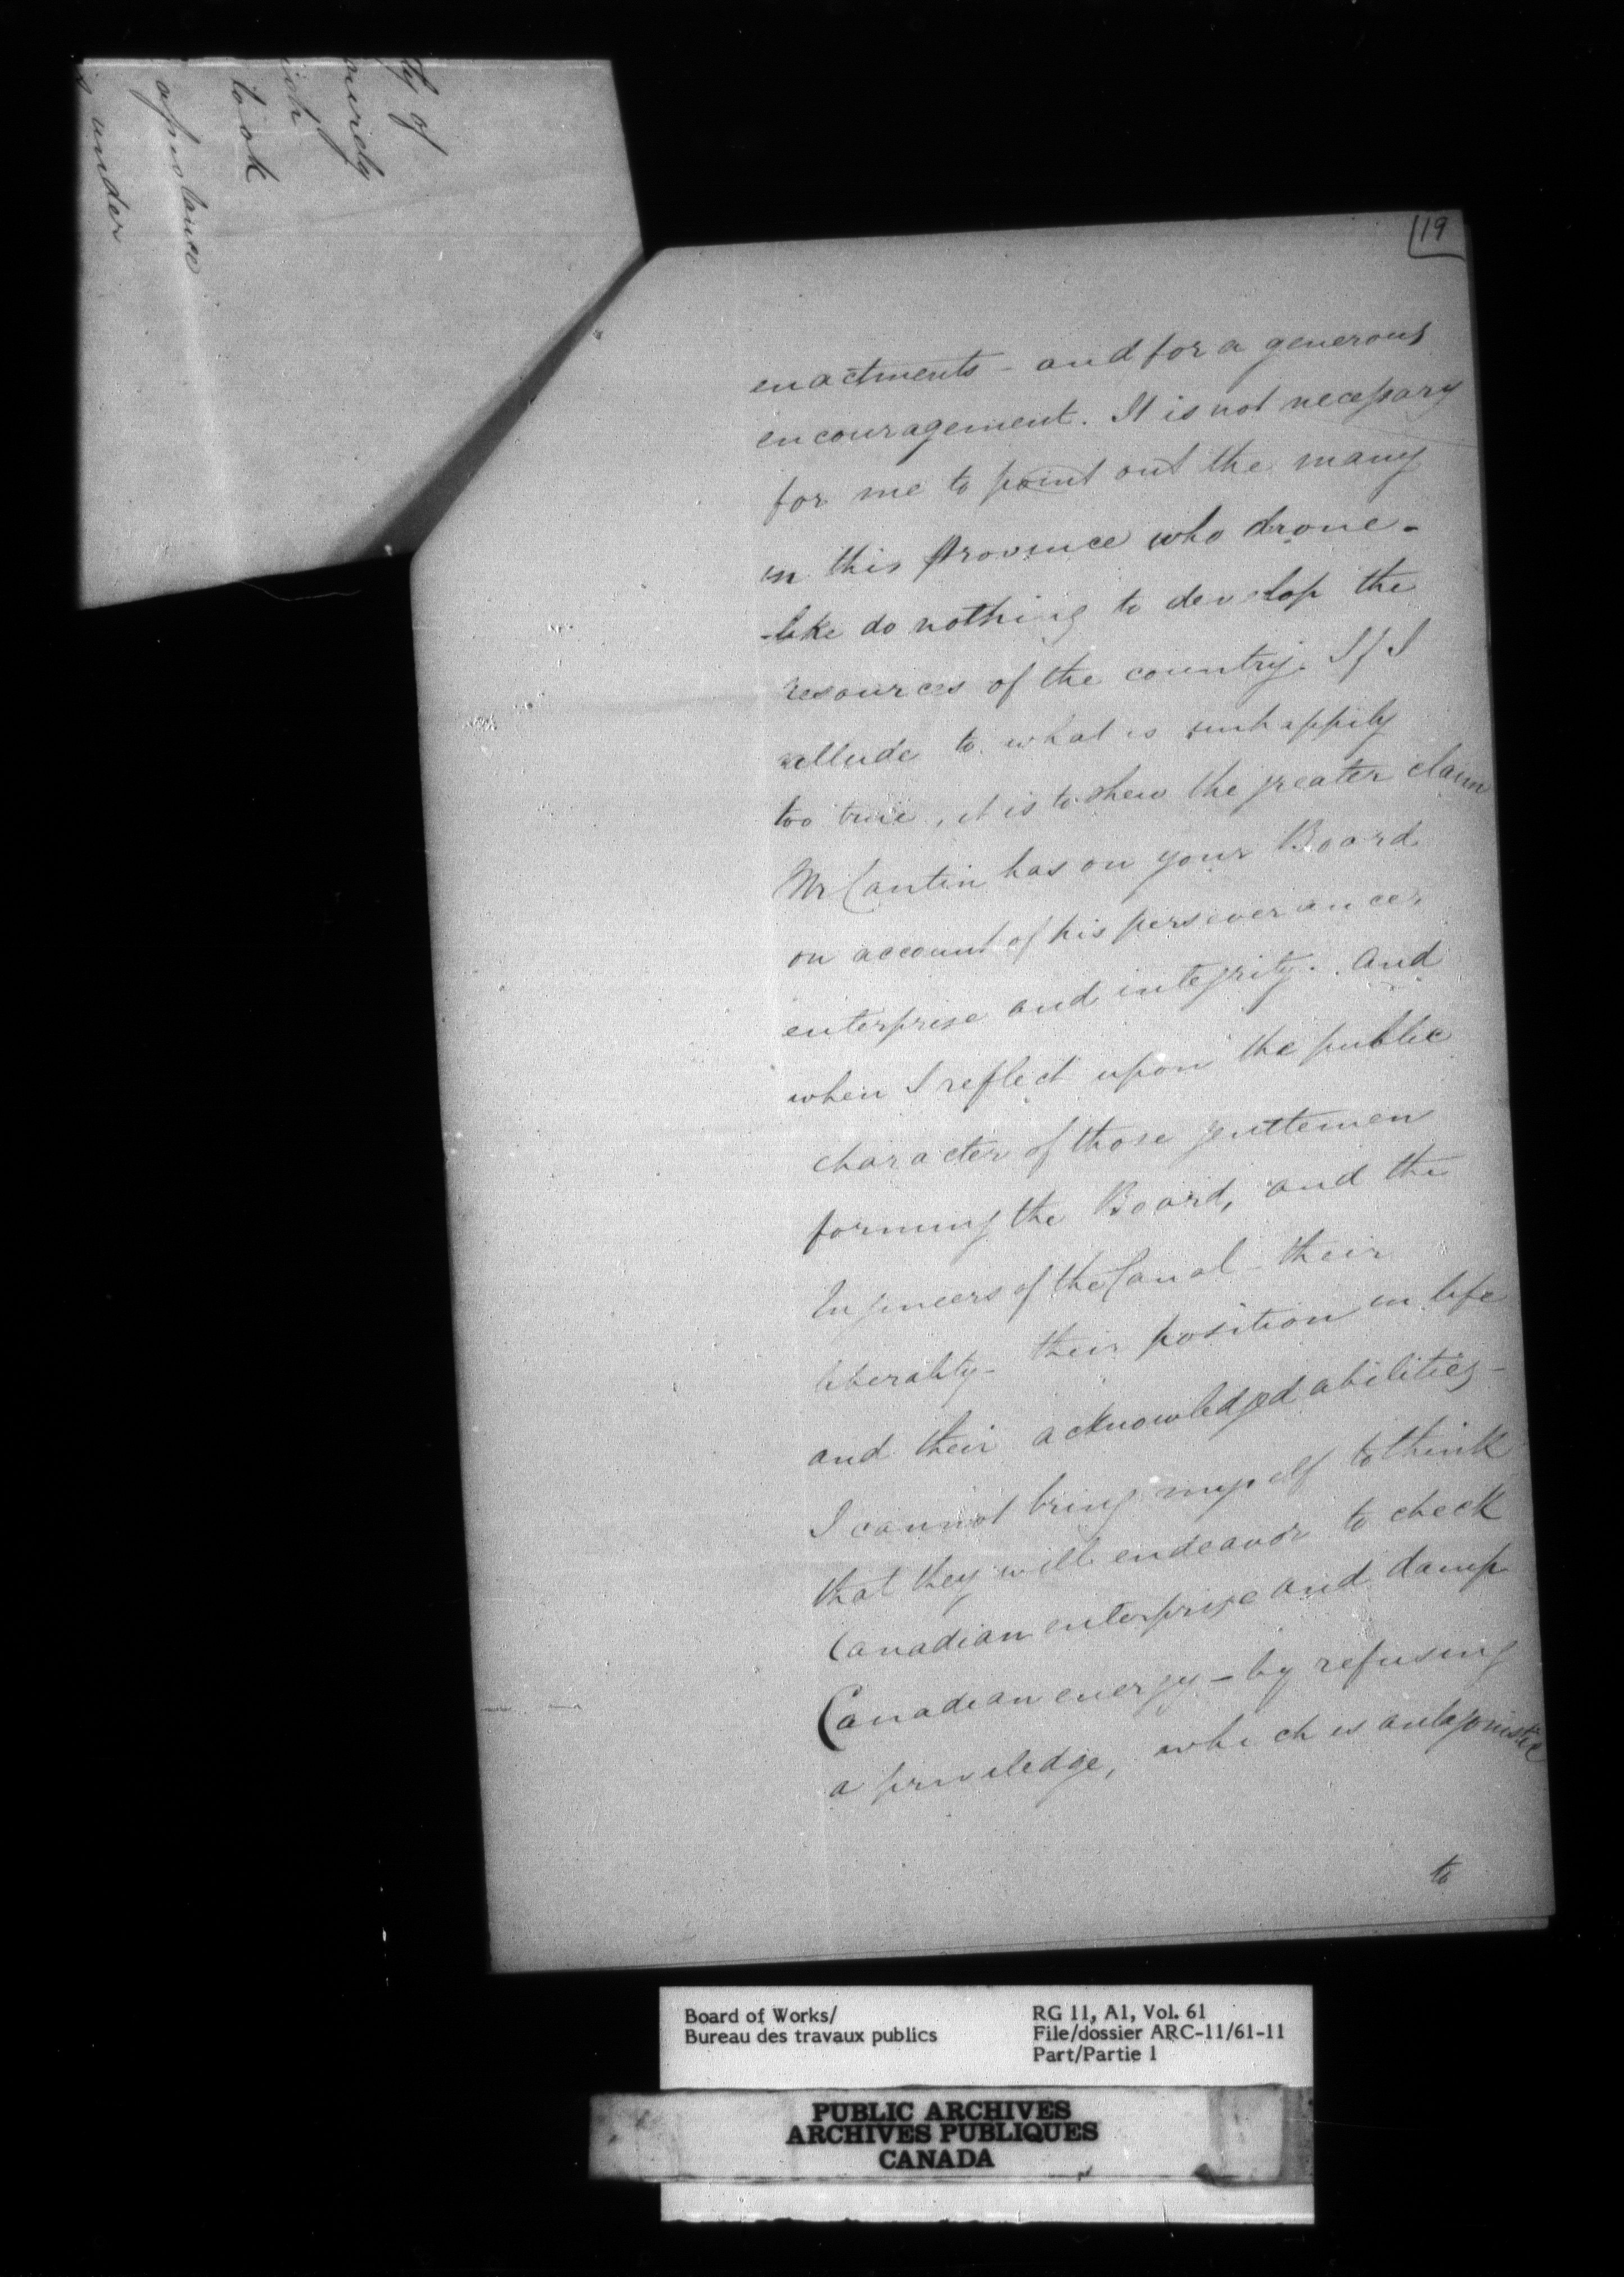 ty of
mirely
took
assistance
under
19
enactments - and for a generous
encouragement. It is not necessary
for me to point out the many
in this Province who drone-
-like do nothing to develop the
resources of the country. If I
allude to what is unhappily
too true, it is to shew the greater claim
Mr Cantin has on your Board
on account of his perseverance,
enterprise and integrity. And
when I reflect upon the public
character of those gentlemen
forming the Board, and the
Engineers of the Canal - their
liberality - their position in life
and their acknowledged abilities -
I cannot bring myself to think
that they will endeavor to check
Canadian enterprise and damp
Canadian energy - by refusing
a priviledge, which is antagonistic
to
Board of Works/
Bureau des travaux publics
RG 11, A1, Vol. 61
File/dossier ARC-11/61-11
Part/Partie 1
PUBLIC ARCHIVES
ARCHIVES PUBLIQUES
CANADA